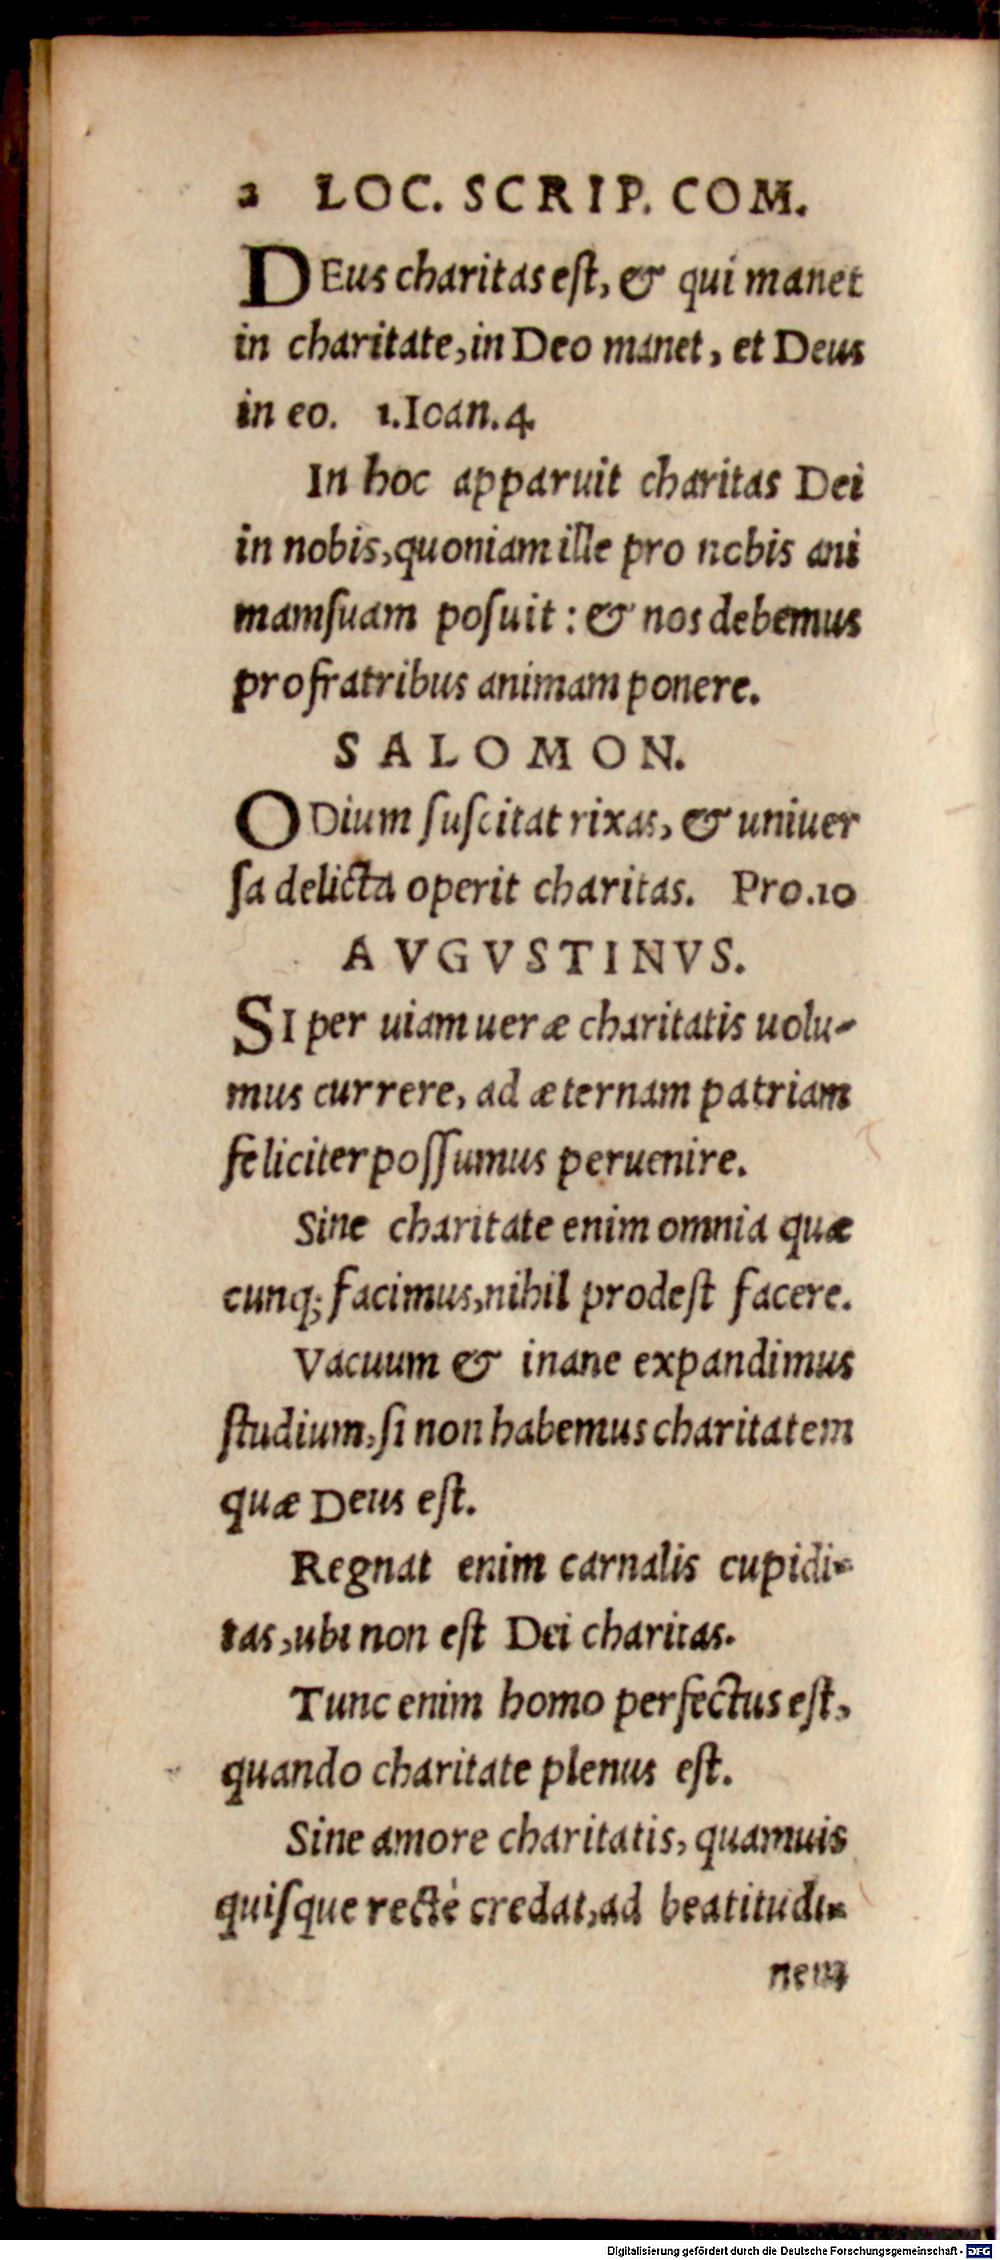 2 LOC. SCRIP. COM.
DEus charitas eſt, & qui manet
in charitate, in Deo manet, et Deus
in eo. 1. Ioan. 4
In hoc apparuit charitas Dei
in nobis, quoniam ille pro nobis ani
mam ſuam poſuit: & nos debemus
pro fratribus animam ponere.
SALOMON.
ODium ſuſcitat rixas, & uniuer
ſa delicta operit charitas. Pro. 10
AVGVSTINVS.
SI per uiam ueræ charitatis uolu-
mus currere, ad æternam patriam
feliciter poſſumus peruenire.
Sine charitate enim omnia quæ
cunq; facimus, nihil prodeſt facere.
Vacuum & inane expandimus
ſtudium, ſi non habemus charitatem
quæ Deus eſt.
Regnat enim carnalis cupidi-
tas, ubi non eſt Dei charitas.
Tunc enim homo perfectus eſt,
quando charitate plenus eſt.
Sine amore charitatis, quamuis
quiſque rectè credat, ad beatitudi-
nem
Digitalisierung gefördert durch die Deutsche Forschungsgemeinschaft - DFG